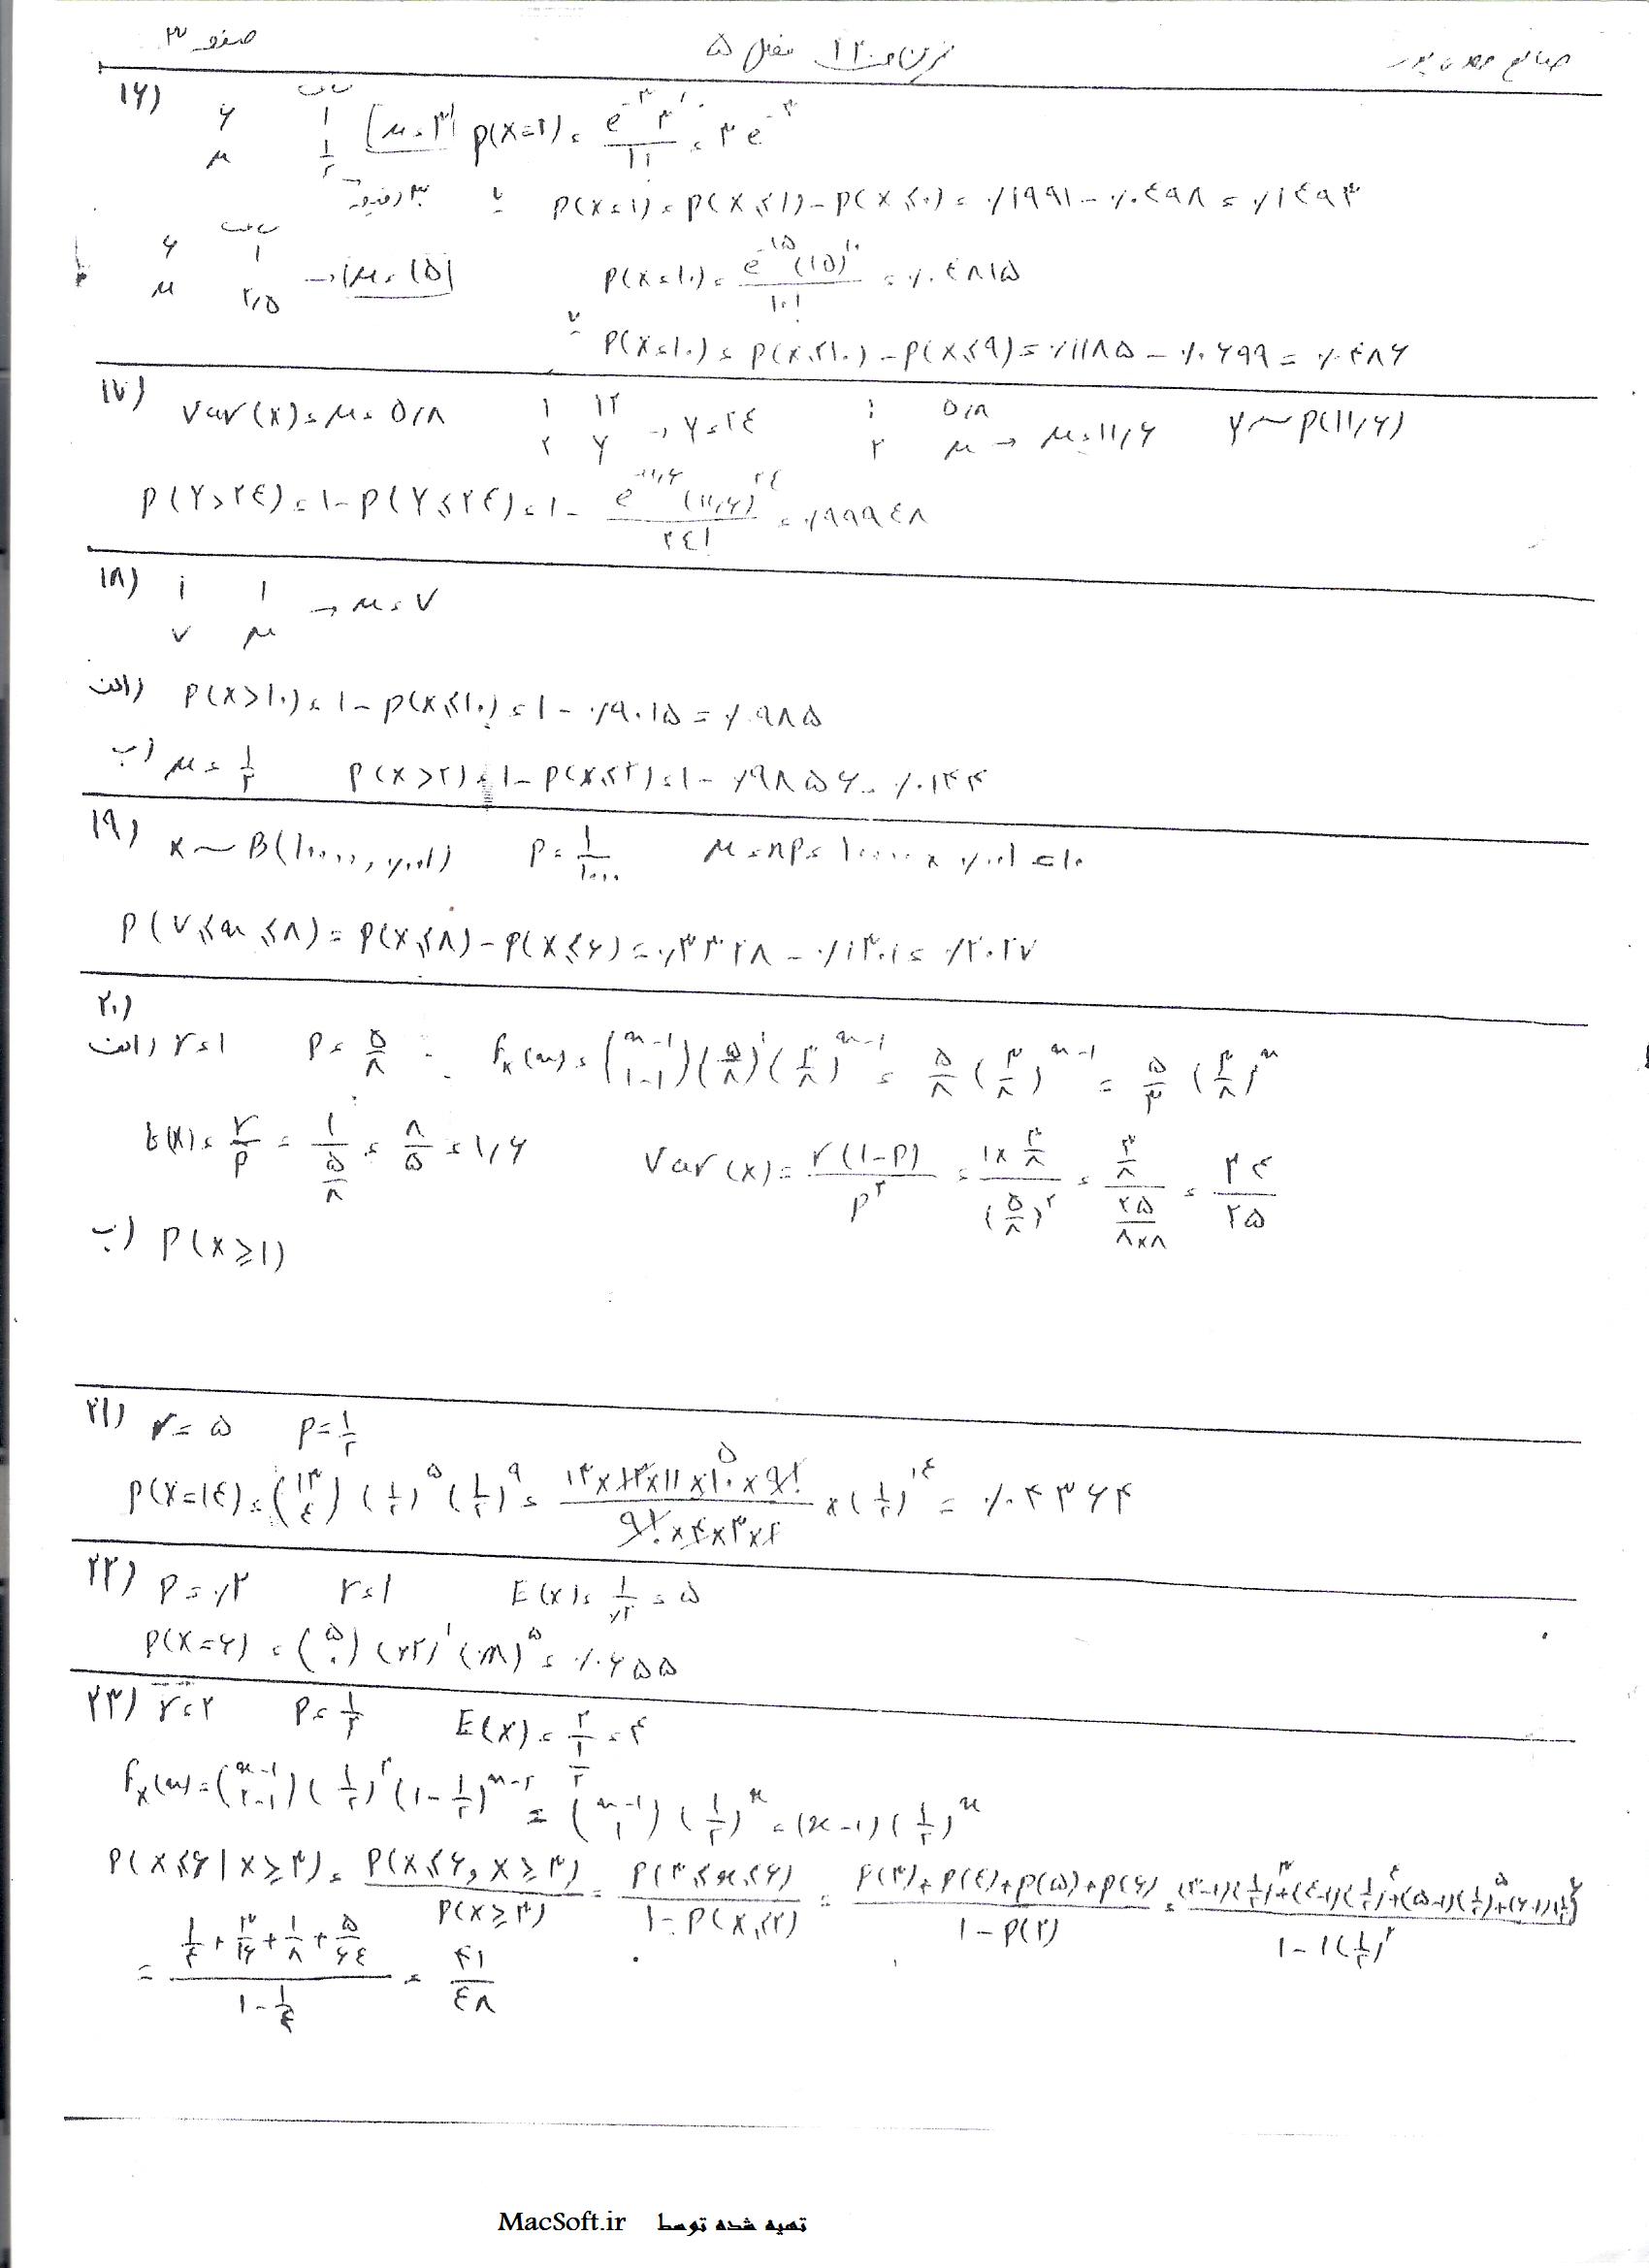 صفحه ۳
۱۶) ۶ ۱ [μ=۳] P(X=1) = e^-۳ ۳^۱ / ۱! = ۳e^-۳
μ ۱/۲
۳۰ دقیقه یا P(X=۱) = P(X≤۱) - P(X≤۰) = ٫۱۹۹۱ - ٫۰۴۹۸ = ٫۱۴۹۳
۶ ساعت ۱
μ ۲٫۵ → μ=۱۵ P(X=۱۰) = e^-۱۵ (۱۵)^۱۰ / ۱۰! = ٫۰۴۸۱۵
یا P(X=۱۰) = P(X≤۱۰) - P(X≤۹) = ٫۱۱۸۵ - ٫۰۶۹۹ = ٫۰۴۸۶
۱۷) Var(X) = μ = ۵٫۸ ۱ ۱۲ ۱ ۵٫۸ Y~P(۱۱٫۶)
۲ Y → Y=۲۴ ۲ μ → μ=۱۱٫۶
P(Y>۲۴) = ۱-P(Y≤۲۴) = ۱- e^-۱۱٫۶ (۱۱٫۶)^۲۴ / ۲۴! = ٫۹۹۹۴۸
۱۸) ۱ ۱ → μ=۷
۷ μ
الف) P(X>۱۰) = ۱-P(X≤۱۰) = ۱- ٫۹۰۱۵ = ٫۰۹۸۵
ب) μ = ۱/۲ P(X>۲) = ۱-P(X≤۲) = ۱- ٫۹۸۵۶ = ٫۰۱۴۴
۱۹) X~B(۱۰۰۰۰, ٫۰۰۱) P = ۱/۱۰۰۰ μ=np= ۱۰۰۰۰ × ٫۰۰۱ = ۱۰
P(۷≤x≤۸) = P(X≤۸) - P(X≤۶) = ٫۳۳۲۸ - ٫۱۳۰۱ = ٫۲۰۲۷
۲۰)
الف) r=۱ P = ۵/۸ f_X(x) = (x-۱ ۱-۱)(۵/۸)^۱(۳/۸)^x-۱ = ۵/۸ (۳/۸)^x-۱ = ۵/۳ (۳/۸)^x
E(X) = r/P = ۱/(۵/۸) = ۸/۵ = ۱٫۶ Var(X) = r(۱-P)/P^۲ = (۱×۳/۸)/(۵/۸)^۲ = (۳/۸)/(۲۵/۸×۸) = ۲۴/۲۵
ب) P(X≥۱)
۲۱) r=۵ P=۱/۲
P(X=۱۴) = (۱۳ ۴)(۱/۲)^۵(۱/۲)^۹ = ۱۳×۱۲×۱۱×۱۰×۹!/۹!×۴×۳×۲ × (۱/۲)^۱۴ = ٫۰۴۳۶۴
۲۲) P=٫۲ r=۱ E(X) = ۱/٫۲ = ۵
P(X=۶) = (۵ ۰)(٫۲)^۱(٫۸)^۵ = ٫۰۶۵۵
۲۳) r=۲ P=۱/۲ E(X) = ۲/(۱/۲) = ۴
f_X(x) = (x-۱ ۲-۱)(۱/۲)^۲(۱-۱/۲)^x-۲ = (x-۱ ۱)(۱/۲)^x = (x-۱)(۱/۲)^x
P(X≤۶ | X≥۳) = P(X≤۶, X≥۳)/P(X≥۳) = P(۳≤x≤۶)/۱-P(X≤۲) = P(۳)+P(۴)+P(۵)+P(۶)/۱-P(۲) = (۳-۱)(۱/۲)^۳+(۴-۱)(۱/۲)^۴+(۵-۱)(۱/۲)^۵+(۶-۱)(۱/۲)^۶/۱-۱(۱/۲)^۲
= (۱/۴ + ۳/۱۶ + ۱/۸ + ۵/۶۴)/(۱-۱/۴) = ۴۱/۴۸
تهیه شده توسط MacSoft.ir